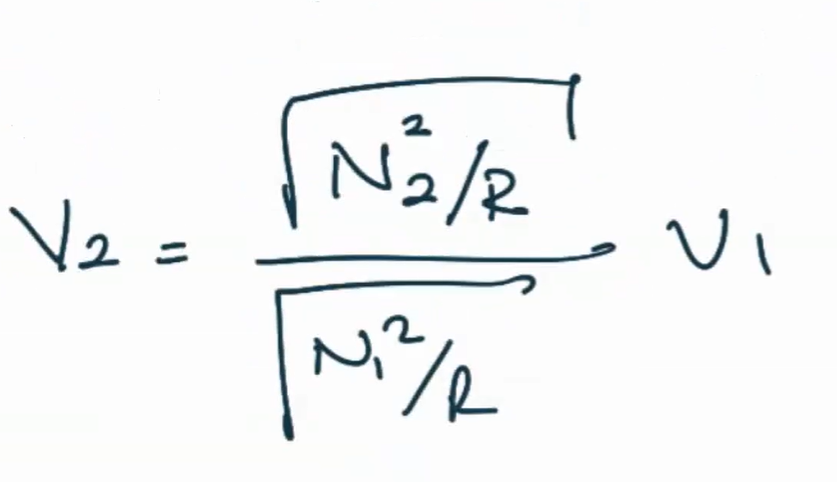 V₂ = √(N₂²/R) / √(N₁²/R) V₁